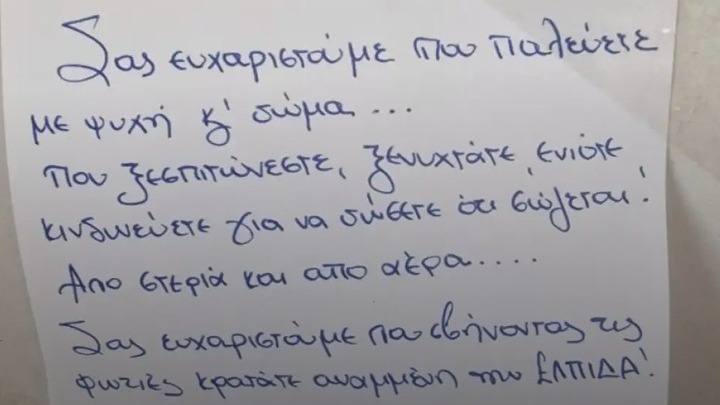 Σας ευχαριστούμε που παλεύετε
με ψυχή κ' σώμα...
που ξεσπιτώνεστε, ξενυχτάτε, ενίοτε
κινδυνεύετε για να σώσετε ότι σώζεται!
Απο στεριά και απο αέρα.....
Σας ευχαριστούμε που σβήνοντας τις
φωτιές κρατάτε αναμμένη την ΕΛΠΙΔΑ!